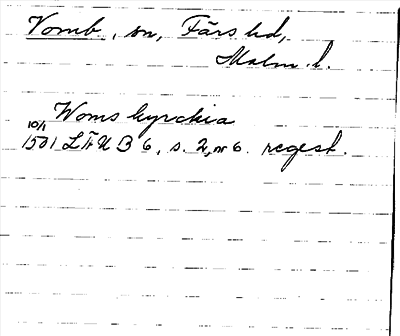 Vomb, sn, Färs hd,
Malm. l.
Woms kyrckia
10/1
1501 LÄU B 6, s. 2, nr 6. regest.